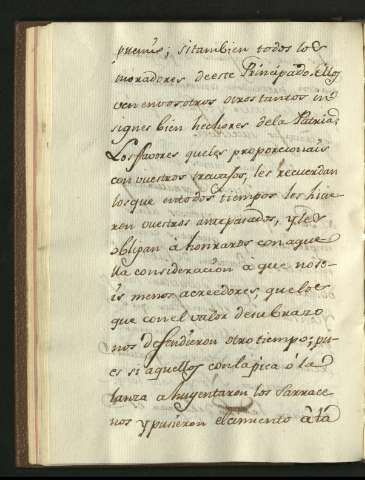 premis; si tambien todos los
moradores de este Principado. Ellos
ven en vosotros otros tantos in
signes bien hechores de la Patria;
Los favores que les proporcionais
con vuestros travajos, les recuerdan
los que en todos tiempos les hicie
ron vuestros antepasados, y les
obligan á honraros con aque
lla consideracion á que no so
is menos acreedores, que los
que con el valor de su brazo
nos defendieron otro tiempo; pu
es si aquellos con la pica ó la
lanza ahuyentaron los Sarrace
nos y pusieron el cimiento á la